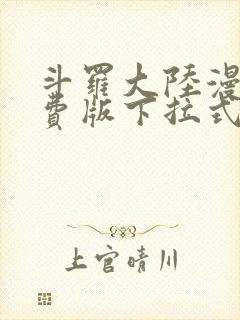 斗羅大陸漫
費版下拉式
上官晴川